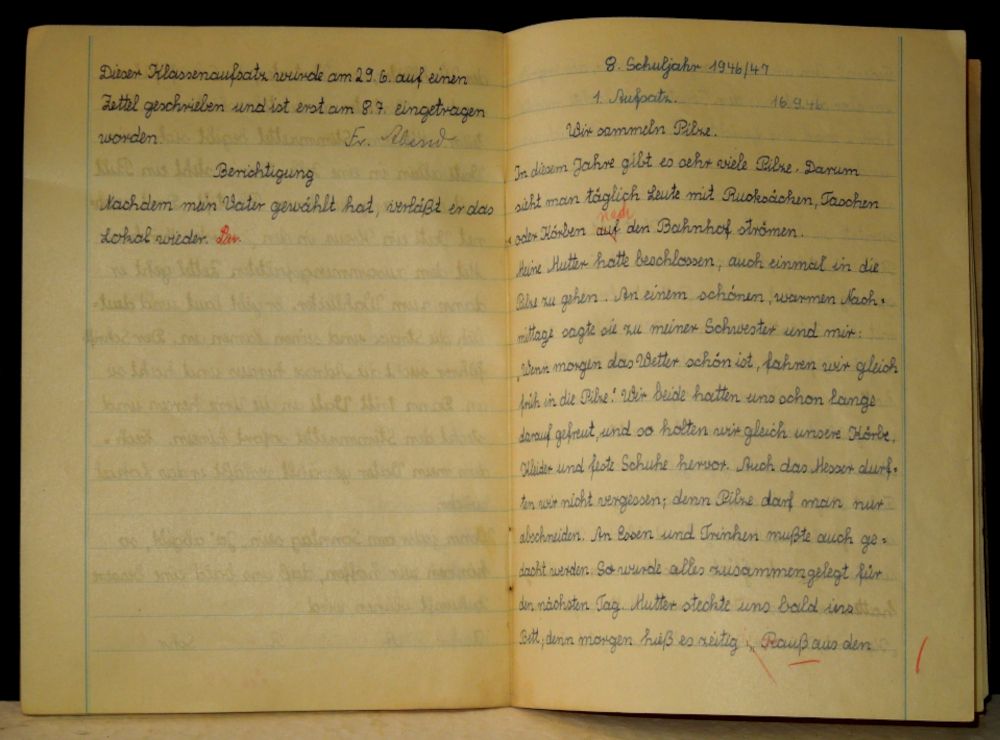 Dieser Klassenaufsatz wurde am 29.6. auf einen
Zettel geschrieben und ist erst am 8.7. eingetragen
worden. Fr. Abend
Berichtigung
Nachdem mein Vater gewählt hat, verläßt er das
Lokal wieder.
8. Schuljahr 1946/47
1. Aufsatz. 16.9.46.
Wir sammeln Pilze.
In diesem Jahre gibt es sehr viele Pilze. Darum
sieht man täglich Leute mit Rucksächen, Taschen
nach
oder Körben auf den Bahnhof strömen.
Meine Mutter hatte beschlossen, auch einmal in die
Pilze zu gehen. An einem schönen, warmen Nach=
mittage sagte sie zu meiner Schwester und mir:
„Wenn morgen das Wetter schön ist, fahren wir gleich
früh in die Pilze." Wir beide hatten uns schon lange
darauf gefreut, und so holten wir gleich unsere Körbe,
Kleider und feste Schuhe hervor. Auch das Messer durf=
ten wir nicht vergessen; denn Pilze darf man nur
abschneiden. An Essen und Trinken mußte auch ge=
dacht werden. So wurde alles zusammengelegt für
den nächsten Tag. Mutter steckte uns bald ins
Bett; denn morgen hieß es zeitig „Rauß aus den